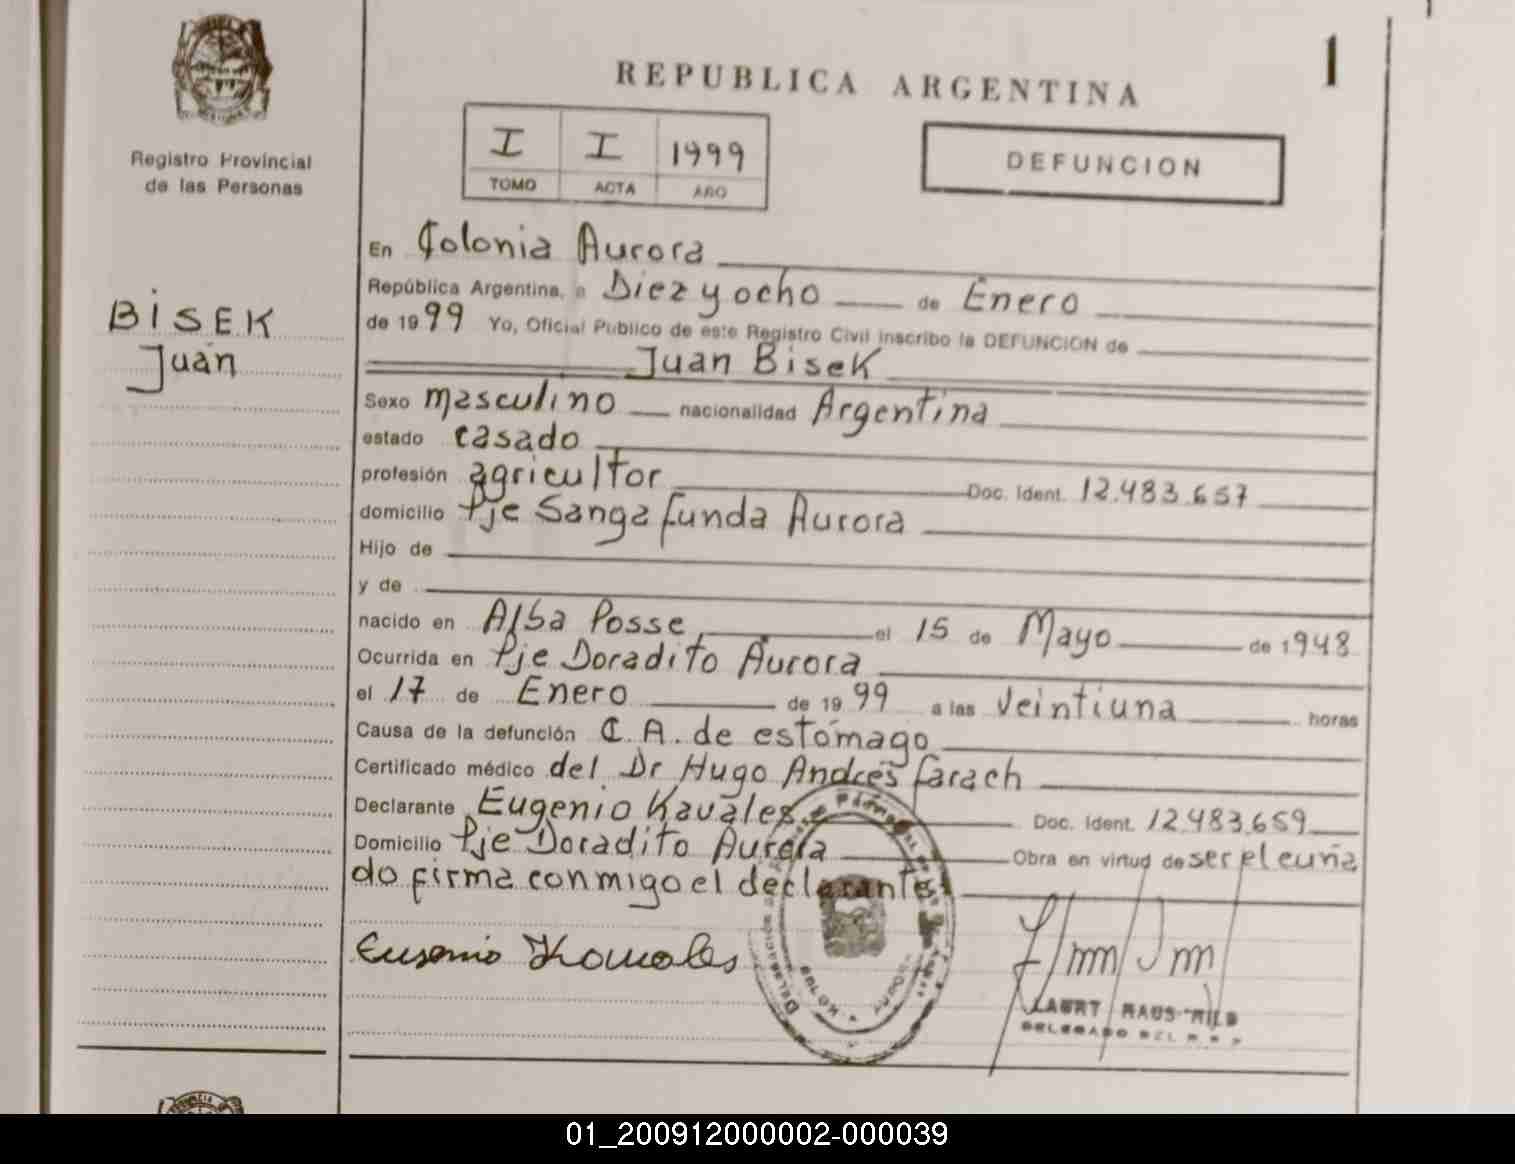 REPUBLICA ARGENTINA
1
I I 1999
TOMO ACTA AÑO
DEFUNCION
Registro Provincial
de las Personas
BISEK
Juan
En Colonia Aurora
República Argentina, a Diez y ocho de Enero
de 1999 Yo, Oficial Publico de este Registro Civil inscribo la DEFUNCION de
Juan Bisek
Sexo masculino nacionalidad Argentina
estado casado
profesión agricultor Doc. Ident. 12.483.657
domicilio Pje Sanga funda Aurora
Hijo de
y de
nacido en Alba Posse el 15 de Mayo de 1948
Ocurrida en Pje Doradito Aurora
el 17 de Enero de 1999 a las veintiuna horas
Causa de la defunción C.A. de estómago
Certificado médico del Dr Hugo Andrés farach
Declarante Eugenio Kavales Doc. Ident. 12.483.659
Domicilio Pje Doradito Aurora Obra en virtud de ser el cuña
do firma conmigo el declarante
DELEGADO DEL R.R.P
01_200912000002-000039